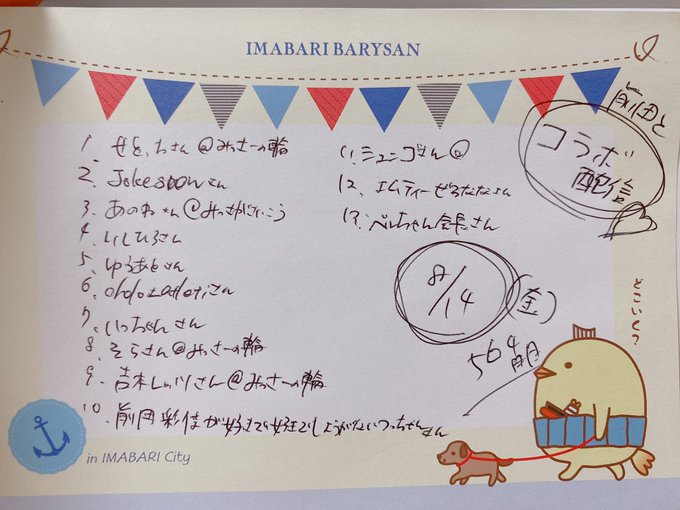 IMABARI BARYSAN
前田と
コラボ
配信
1. せをっちさん@みっさーの輪
2. Jokesoonさん
3. あのねさん@みっさがさいこう
4. いしひろさん
5. ゆうあとさん
6.
7. いっちゃんさん
8. そらさん@みっさーの輪
9. 吉木しゅりさん@みっさーの輪
10. 前田彩佳が好きで好きでしょうがないつっちゃんさん
11. シュンゴさん@
12. エムティーぜろななさん
13. ぺんちゃん会長さん
8/14
(金)
564
どこいく?
in IMABARI City